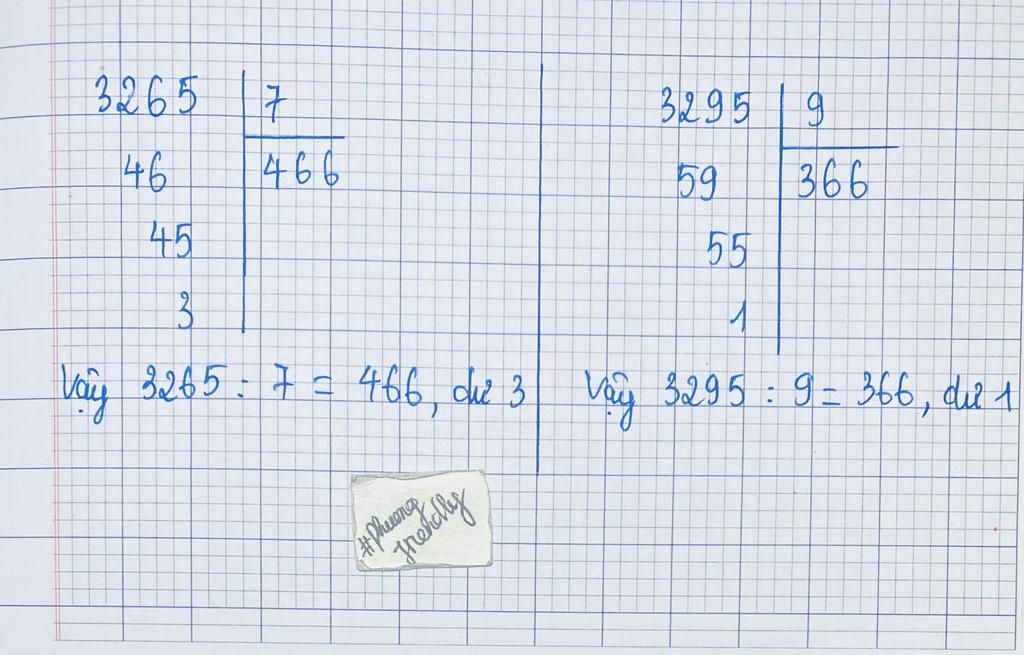 3265 7
46 466
45
3
Vậy 3265 : 7 = 466, dư 3
3295 9
59 366
55
1
Vậy 3295 : 9 = 366, dư 1
#Phuong
friendly